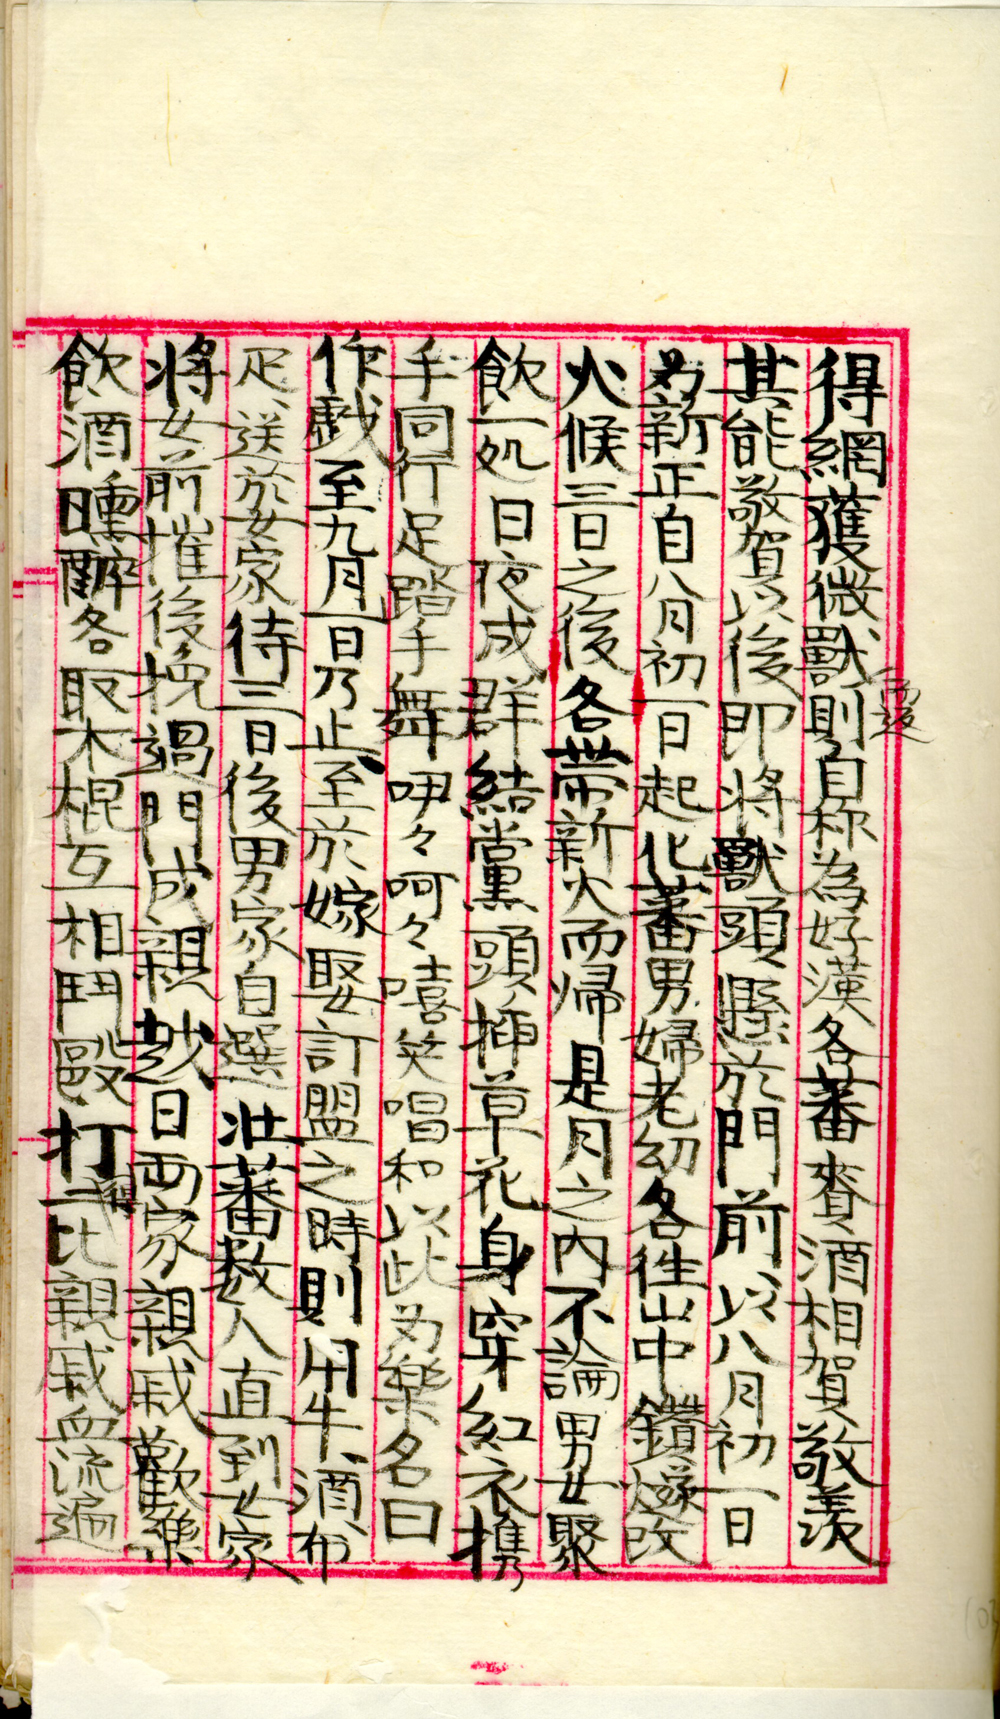 得網獲微獸則自称為好漢各蕃賚酒相賀敬羡
而返
其能敬賀以後即將獸頭懸於門前以八月初一日
為新正自八月初一日起化蕃男婦老幼各往山中鑽燧改
火候三日之後各帶新火而帰是月之内不論男女聚
飲一処日夜成群結黨頭揷草花身穿紅衣携
手同行足踏手舞呼々呵々嘻笑唱和以此为樂名曰
作戯至九月一日乃止至於嫁娶訂盟之時則用牛、酒、布
疋、送於女家待三日後男家自選壮蕃数人直到女家
将女前摧後挽過門成親越日両家親戚歡樂
飲酒醺醉各取木棍互相鬥毆打得一比親戚血流遍